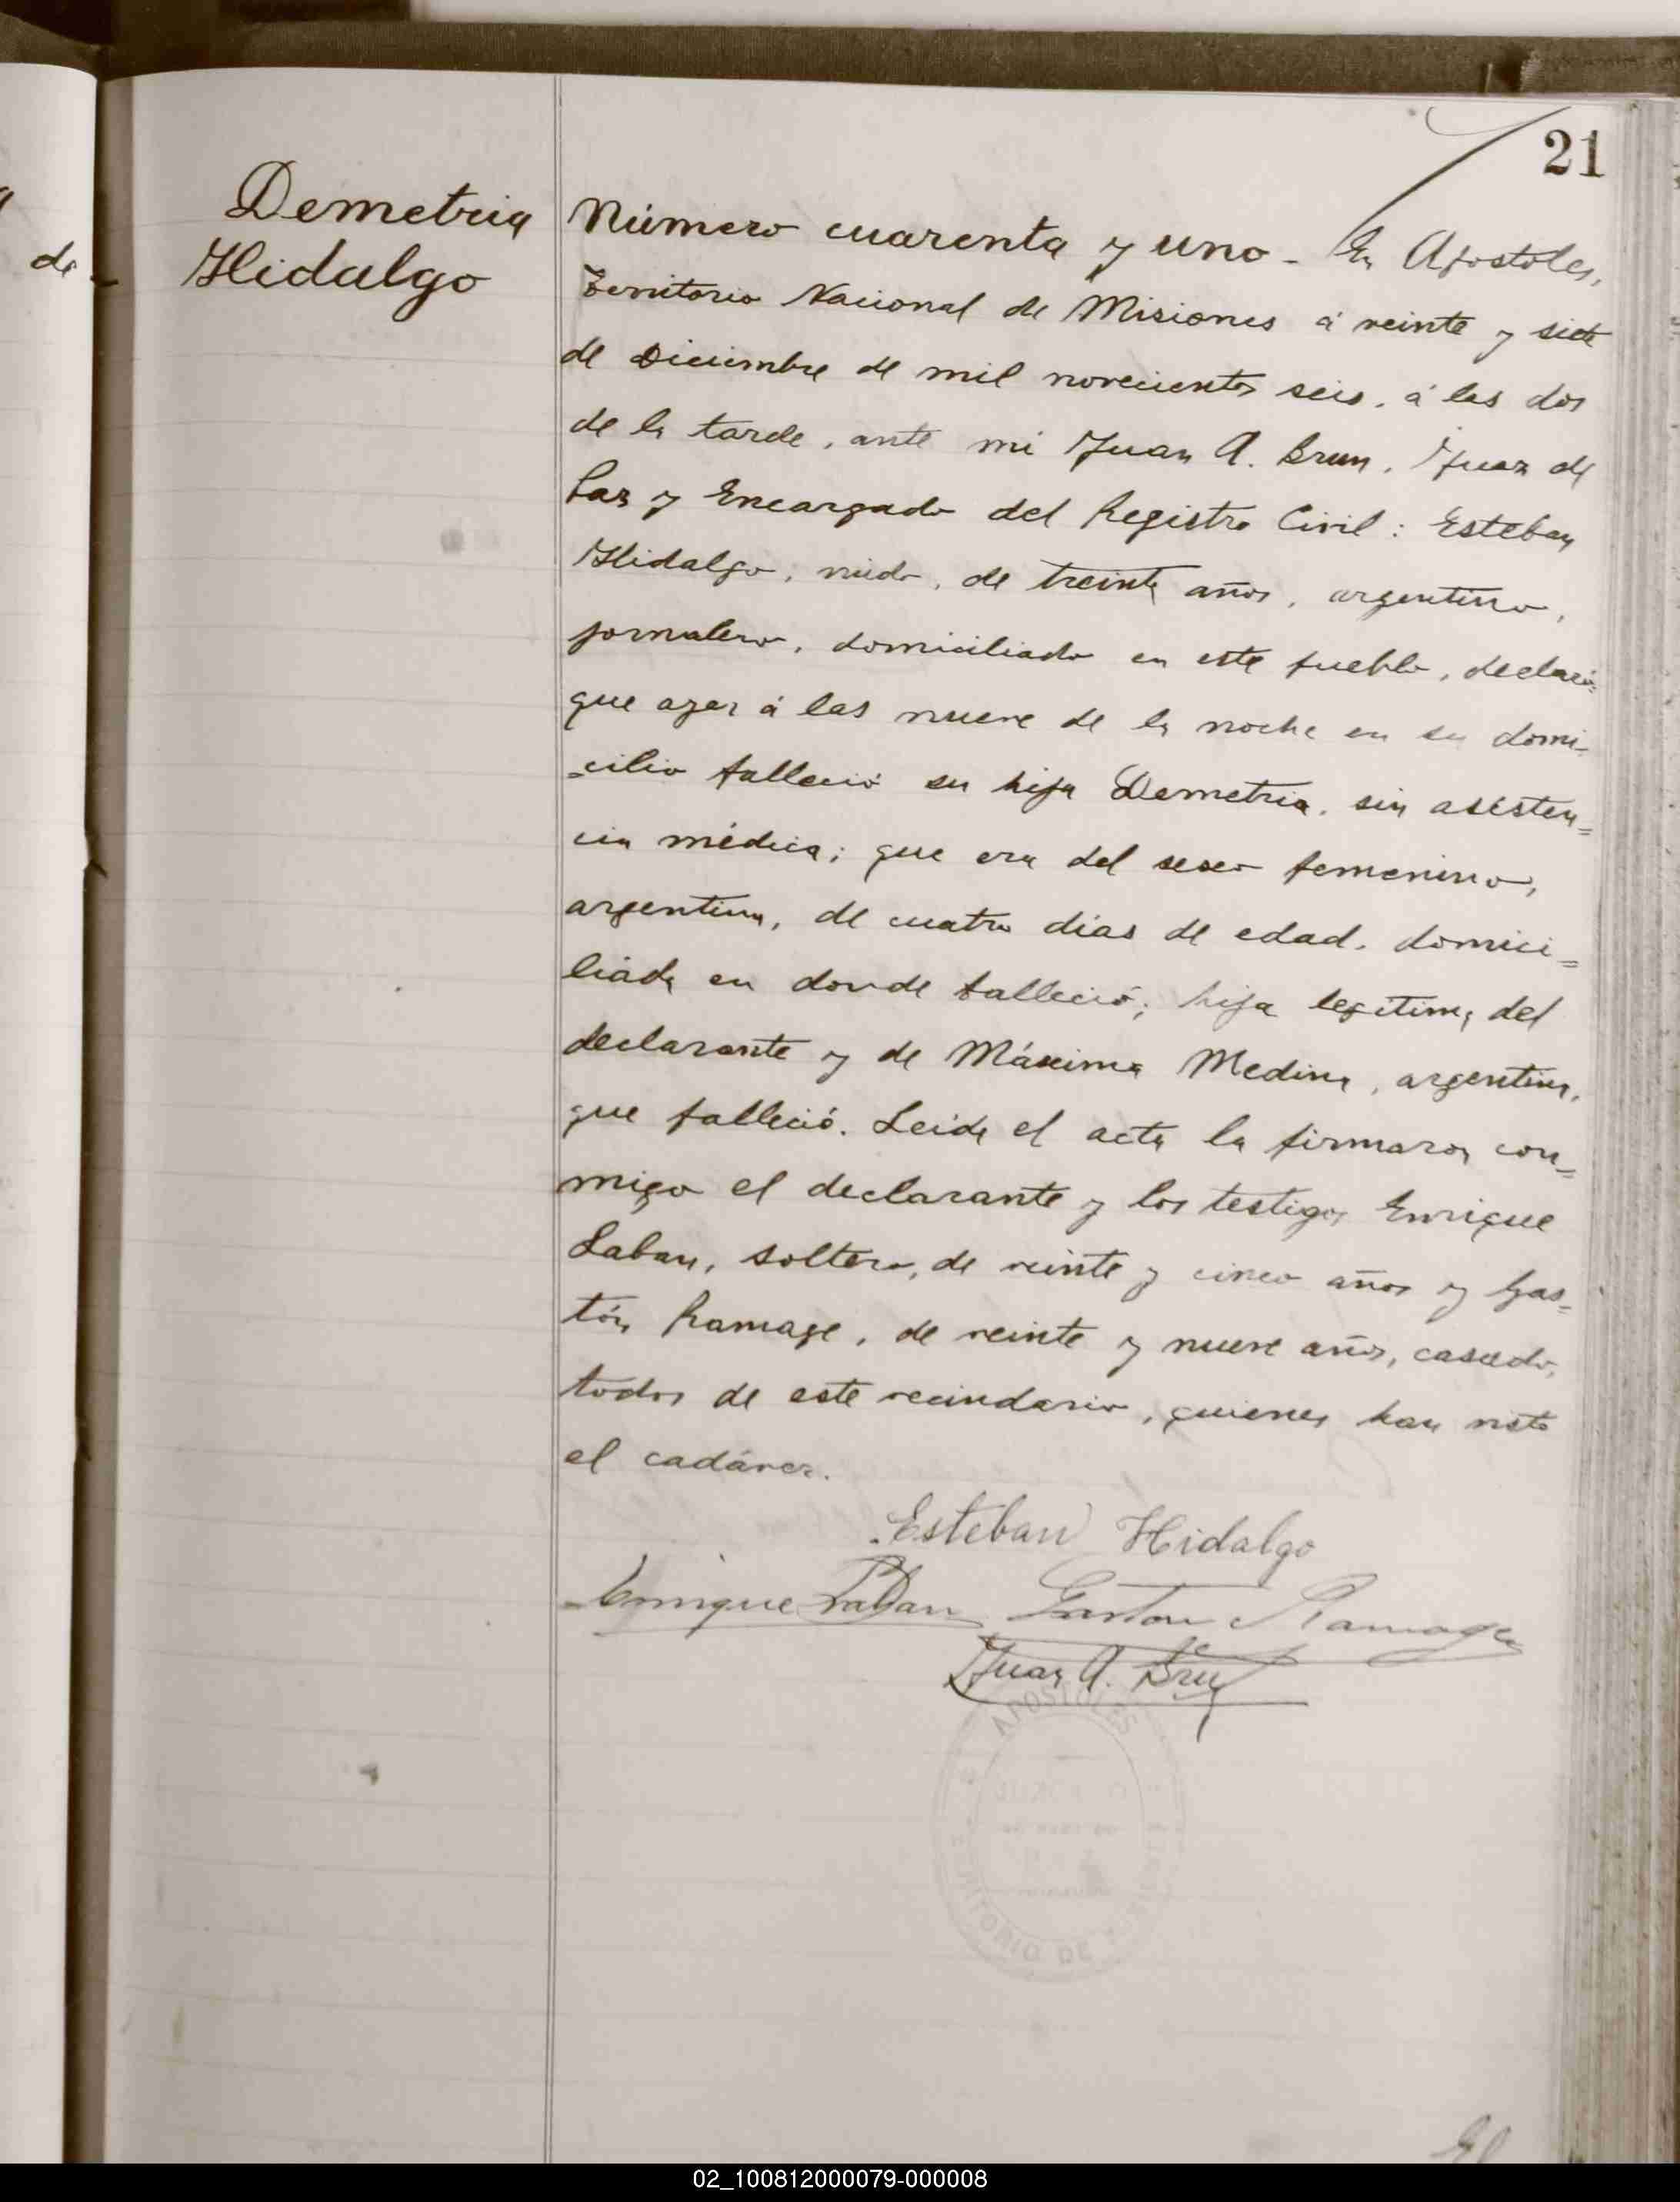 21
Demetria
Hidalgo
de
Número cuarenta y uno - En Apostoles,
Territorio Nacional de Misiones á veinte y siete
de Diciembre de mil novecientos seis, á las dos
de la tarde, ante mi Juan A. Brun, Juez de
Paz y Encargado del Registro Civil: Esteban
Hidalgo, viudo, de treinta años, argentino,
jornalero, domiciliado en este pueblo, declaró
que ayer á las nueve de la noche en su domi-
=cilio falleció su hija Demetria, sin asisten=
cia médica; que era del sexo femenino,
argentina, de cuatro dias de edad, domici=
liada en donde falleció; hija legítima del
declarante y de Máxima Medina, argentina,
que falleció. Leida el acta la firmaron con=
migo el declarante y los testigos Enrique
Laban, soltero, de veinte y cinco años y Gas=
tón Ramage, de veinte y nueve años, casado,
todos de este vecindario, quienes han visto
el cadáver.
Esteban Hidalgo
Enrique Laban Gaston Ramage
Juan A. Brun
APOSTOLES
TORIO DE
El
02_100812000079-000008